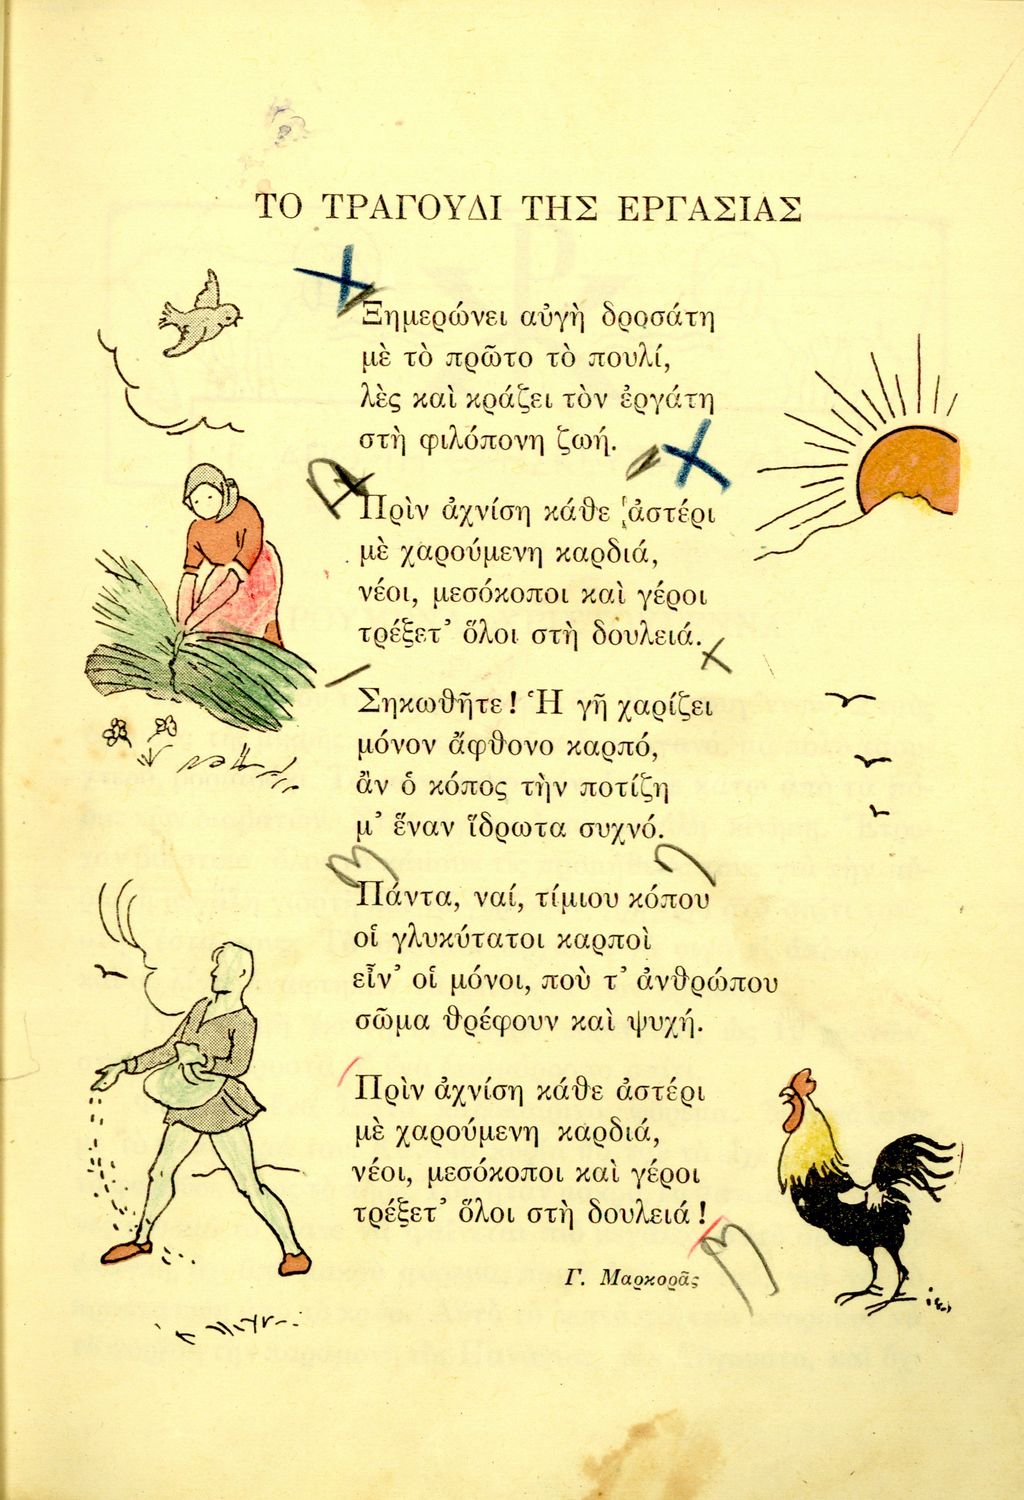 ΤΟ ΤΡΑΓΟΥΔΙ ΤΗΣ ΕΡΓΑΣΙΑΣ
Ξημερώνει αὐγὴ δροσάτη
μὲ τὸ πρῶτο τὸ πουλί,
λὲς καὶ κράζει τὸν ἐργάτη
στὴ φιλόπονη ζωή.
Πρὶν ἀχνίση κάθε ἀστέρι
μὲ χαρούμενη καρδιά,
νέοι, μεσόκοποι καὶ γέροι
τρέξετ' ὅλοι στὴ δουλειά.
Σηκωθῆτε! Ἡ γῆ χαρίζει
μόνον ἄφθονο καρπό,
ἂν ὁ κόπος τὴν ποτίζη
μ' ἕναν ἵδρωτα συχνό.
Πάντα, ναί, τίμιου κόπου
οἱ γλυκύτατοι καρποὶ
εἶν' οἱ μόνοι, ποὺ τ' ἀνθρώπου
σῶμα θρέφουν καὶ ψυχή.
Πρὶν ἀχνίση κάθε ἀστέρι
μὲ χαρούμενη καρδιά,
νέοι, μεσόκοποι καὶ γέροι
τρέξετ' ὅλοι στὴ δουλειά!
Γ. Μαρκορᾶς